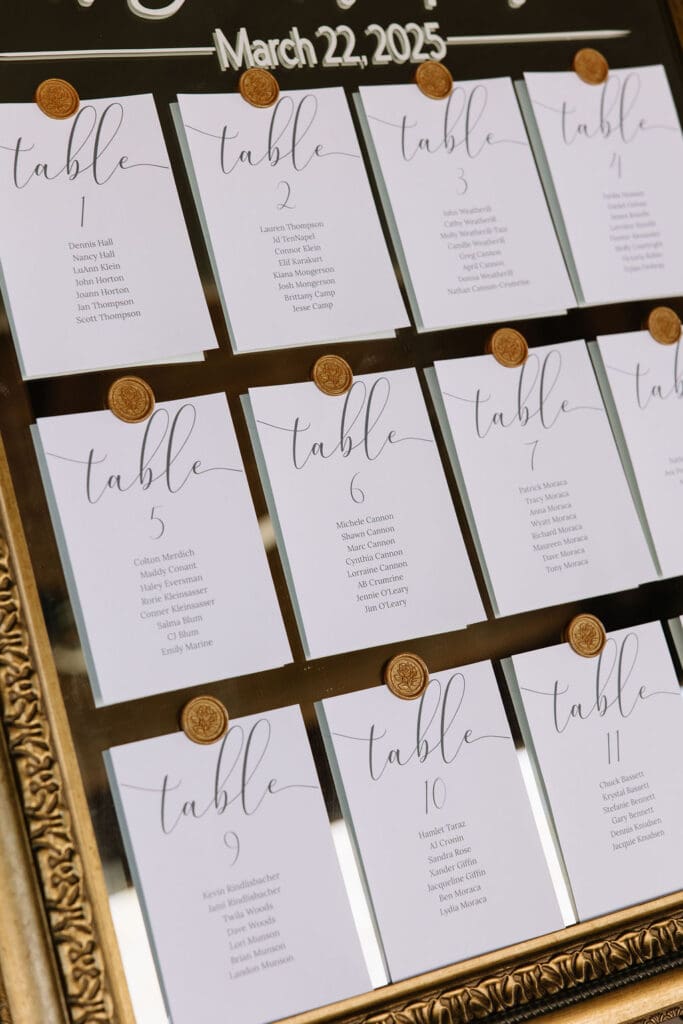 March 22, 2025
table
1
Dennis Hall
Nancy Hall
LuAnn Klein
John Horton
Joann Horton
Jan Thompson
Scott Thompson
table
2
Lauren Thompson
Jd TenNapel
Connor Klein
Elif Karakurt
Kiana Mongerson
Josh Mongerson
Brittany Camp
Jesse Camp
table
3
John Weatherill
Cathy Weatherill
Molly Weatherill-Tate
Camille Weatherill
Greg Cannon
April Cannon
Donna Weatherill
Nathan Cannon-Crumrine
table
4
table
5
Colton Merdich
Maddy Conant
Haley Eversman
Rorie Kleinsasser
Conner Kleinsasser
Salma Blum
CJ Blum
Emily Marine
table
6
Michele Cannon
Shawn Cannon
Marc Cannon
Cynthia Cannon
Lorraine Cannon
AB Crumrine
Jennie O'Leary
Jim O'Leary
table
7
Patrick Moraca
Tracy Moraca
Anna Moraca
Wyatt Moraca
Richard Moraca
Maureen Moraca
Dave Moraca
Tony Moraca
table
9
Kevin Rindlisbacher
Jami Rindlisbacher
Twila Woods
Dave Woods
Lori Munson
Brian Munson
Landon Munson
table
10
Hamlet Taraz
AJ Cronin
Sandra Rose
Xander Giffin
Jacqueline Giffin
Ben Moraca
Lydia Moraca
table
11
Chuck Bassett
Krystal Bassett
Stefanie Bennett
Gary Bennett
Dennis Knudsen
Jacquie Knudsen